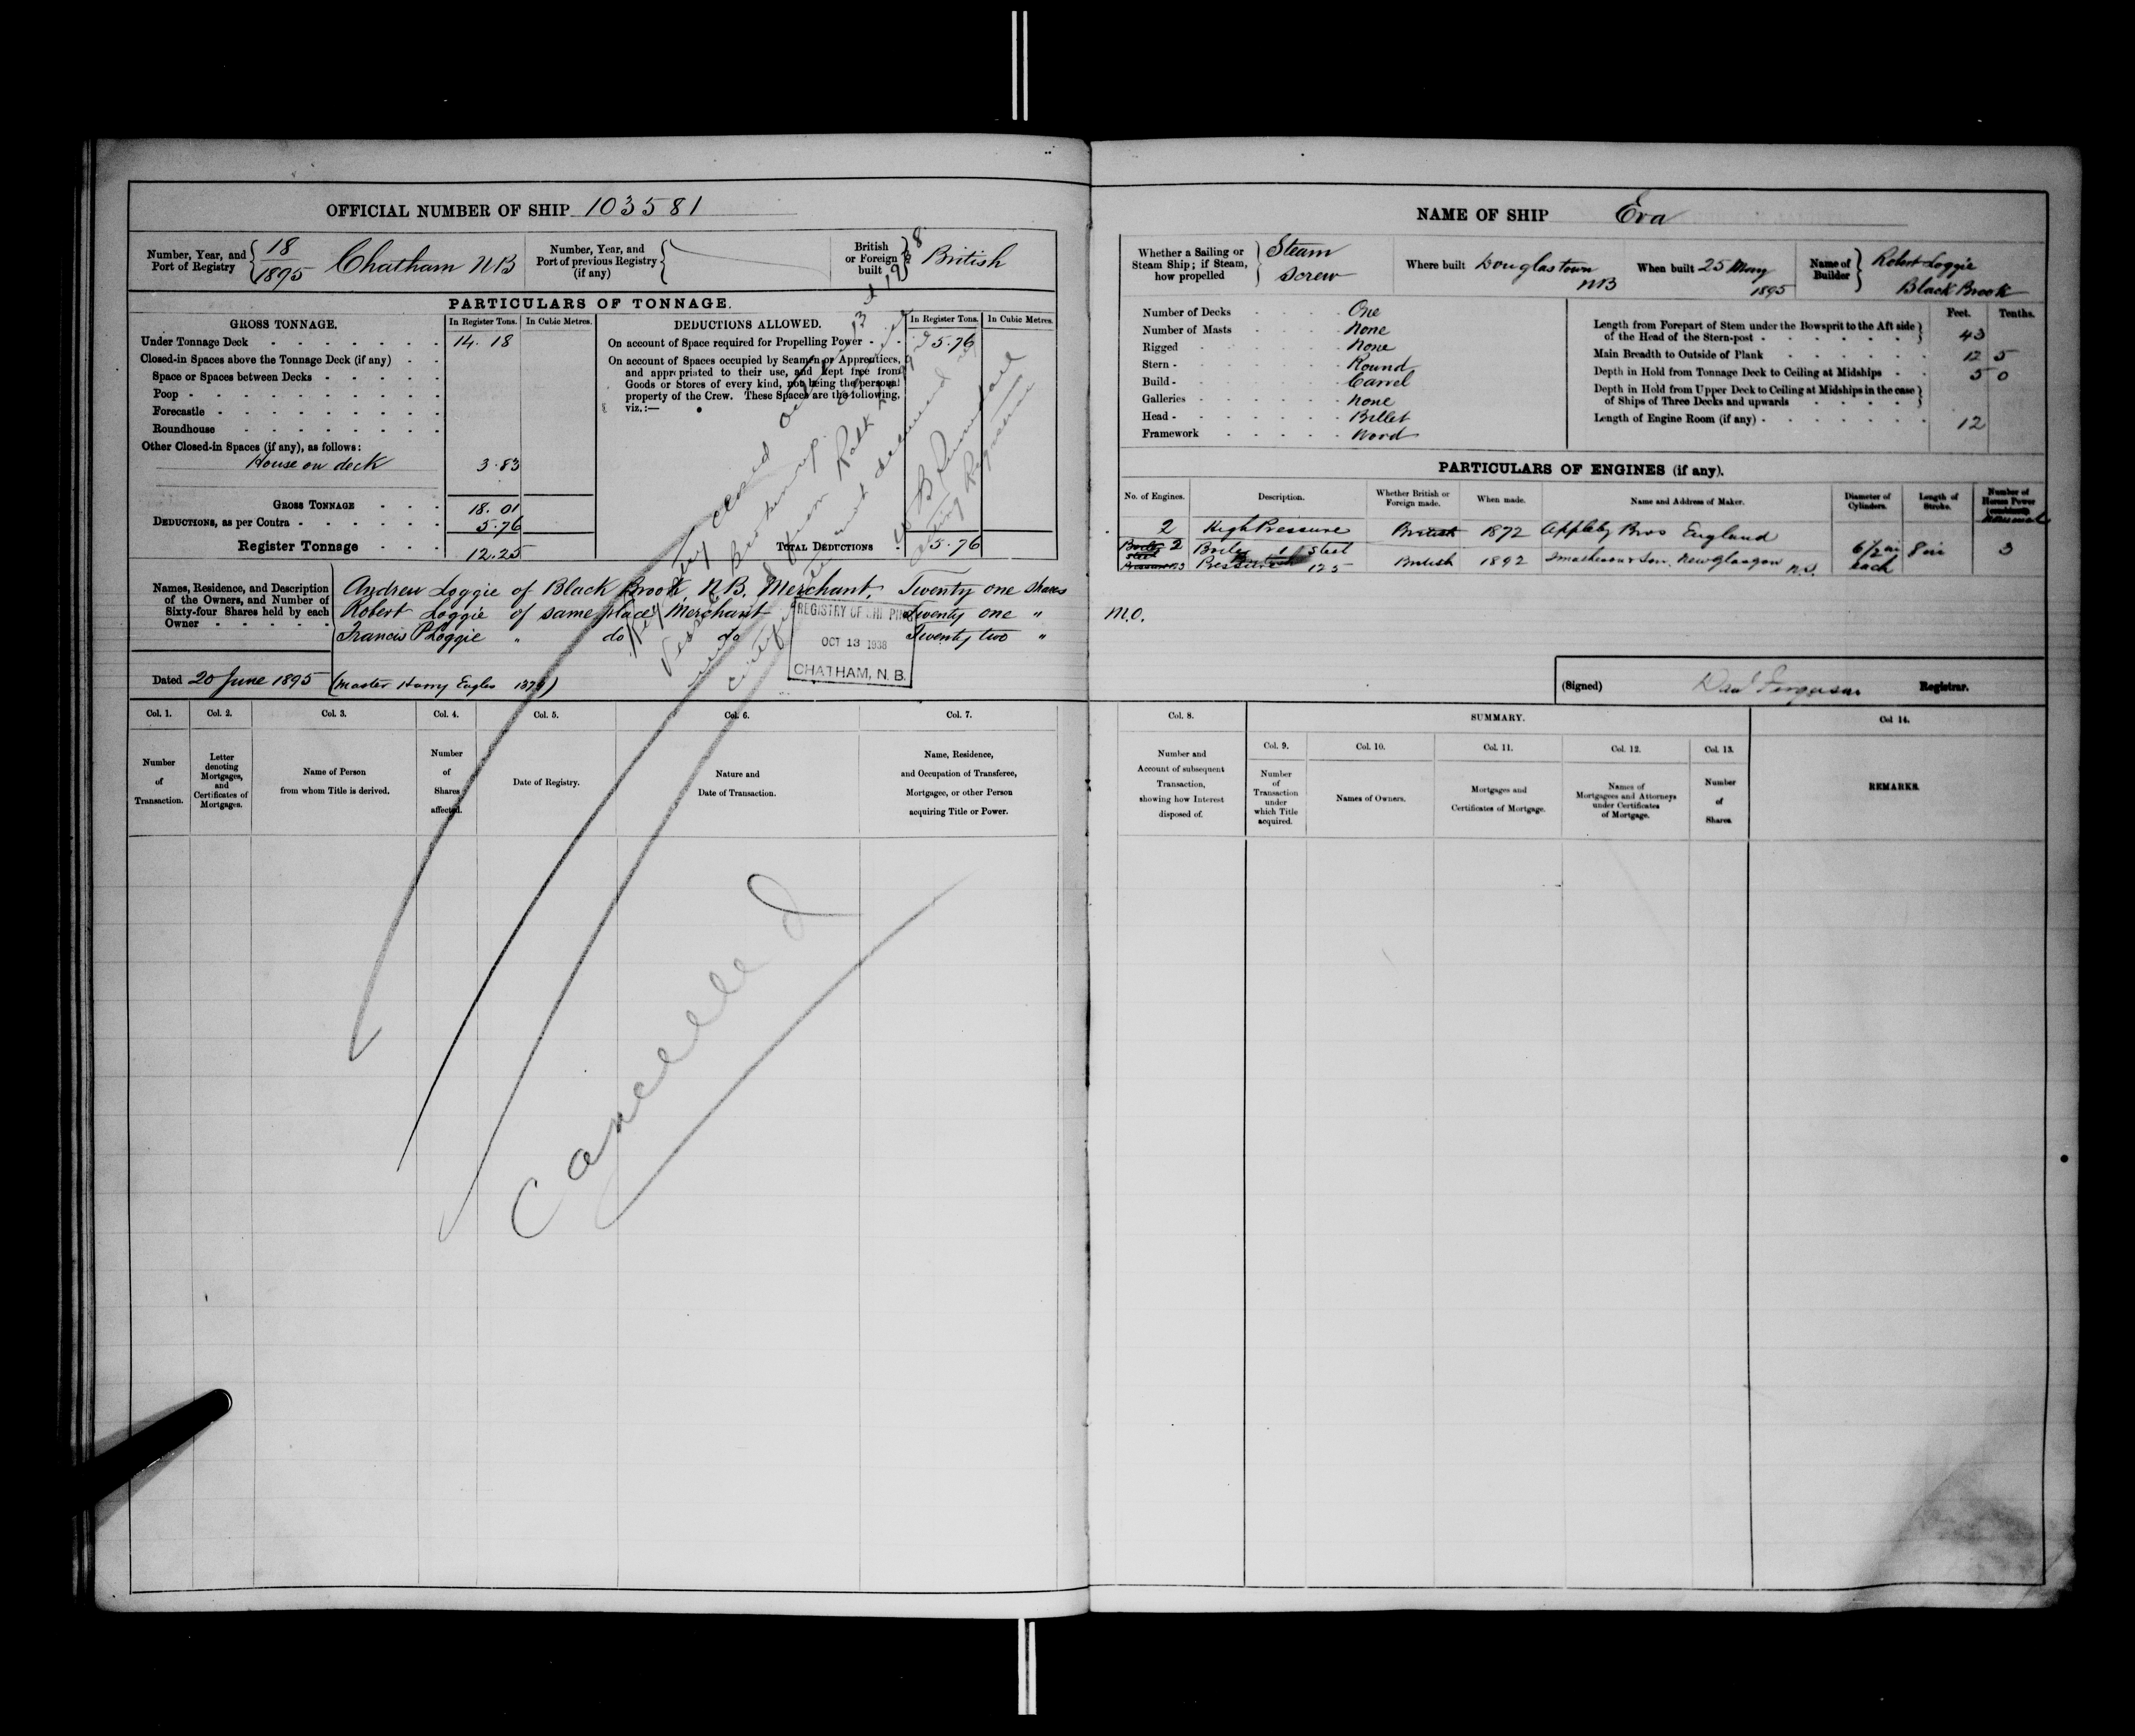 OFFICIAL NUMBER OF SHIP 103581
Number, Year, and Port of Registry 18/1895 Chatham NB
Number, Year, and Port of previous Registry (if any)
British or Foreign built British
PARTICULARS OF TONNAGE.
GROSS TONNAGE. In Register Tons. In Cubic Metres.
Under Tonnage Deck 14.18
Closed-in Spaces above the Tonnage Deck (if any)
Space or Spaces between Decks
Poop
Forecastle
Roundhouse
Other Closed-in Spaces (if any), as follows:
House on deck 3.83
GROSS TONNAGE 18.01
DEDUCTIONS, as per Contra 5.76
Register Tonnage 12.25
DEDUCTIONS ALLOWED. In Register Tons. In Cubic Metres.
On account of Space required for Propelling Power 5.76
On account of Spaces occupied by Seamen or Apprentices,
and appropriated to their use, and kept free from
Goods or Stores of every kind, not being the personal
property of the Crew. These Spaces are the following,
viz.:—
TOTAL DEDUCTIONS 5.76
Names, Residence, and Description
of the Owners, and Number of
Sixty-four Shares held by each
Owner
Andrew Loggie of Black Brook, N.B. Merchant, Twenty one Shares
Robert Loggie of same place Merchant Twenty one "
Francis P Loggie " do do Twenty two "
Dated 20 June 1895 (Master Harry Eagles
Registry closed
Vessel Broken up.
REGISTRY OF SHIPPING
OCT 13 1938
CHATHAM, N. B.
Acting Registrar
Cancelled
Col. 1. Col. 2. Col. 3. Col. 4. Col. 5. Col. 6. Col. 7.
Number of Transaction.
Letter denoting Mortgages, and Certificates of Mortgages.
Name of Person from whom Title is derived.
Number of Shares affected.
Date of Registry.
Nature and Date of Transaction.
Name, Residence, and Occupation of Transferee, Mortgagee, or other Person acquiring Title or Power.
NAME OF SHIP Eva
Whether a Sailing or Steam Ship; if Steam, how propelled Steam Screw
Where built Douglastown NB
When built 25 May 1895
Name of Builder Robert Loggie Black Brook
Number of Decks One
Number of Masts None
Rigged None
Stern Round
Build Carvel
Galleries None
Head Billet
Framework Wood
Feet. Tenths.
Length from Forepart of Stem under the Bowsprit to the Aft side
of the Head of the Stern-post 43
Main Breadth to Outside of Plank 12 5
Depth in Hold from Tonnage Deck to Ceiling at Midships 5 0
Depth in Hold from Upper Deck to Ceiling at Midships in the case
of Ships of Three Decks and upwards
Length of Engine Room (if any) 12
PARTICULARS OF ENGINES (if any).
No. of Engines. Description. Whether British or Foreign made. When made. Name and Address of Maker. Diameter of Cylinders. Length of Stroke. Number of Horses Power (combined)
2 High Pressure British 1872 Appleby Bros England
Boiler 1 Steel
Pressure 125 British 1892 New Glasgow N.S. 6 1/2 in each 8 in 3
M.O.
(Signed) Registrar.
Col. 8. SUMMARY. Col 14.
Col. 9. Col. 10. Col. 11. Col. 12. Col. 13.
Number and Account of subsequent Transaction, showing how Interest disposed of.
Number of Transaction under which Title acquired.
Names of Owners.
Mortgages and Certificates of Mortgage.
Names of Mortgagees and Attorneys under Certificates of Mortgage.
Number of Shares
REMARKS.